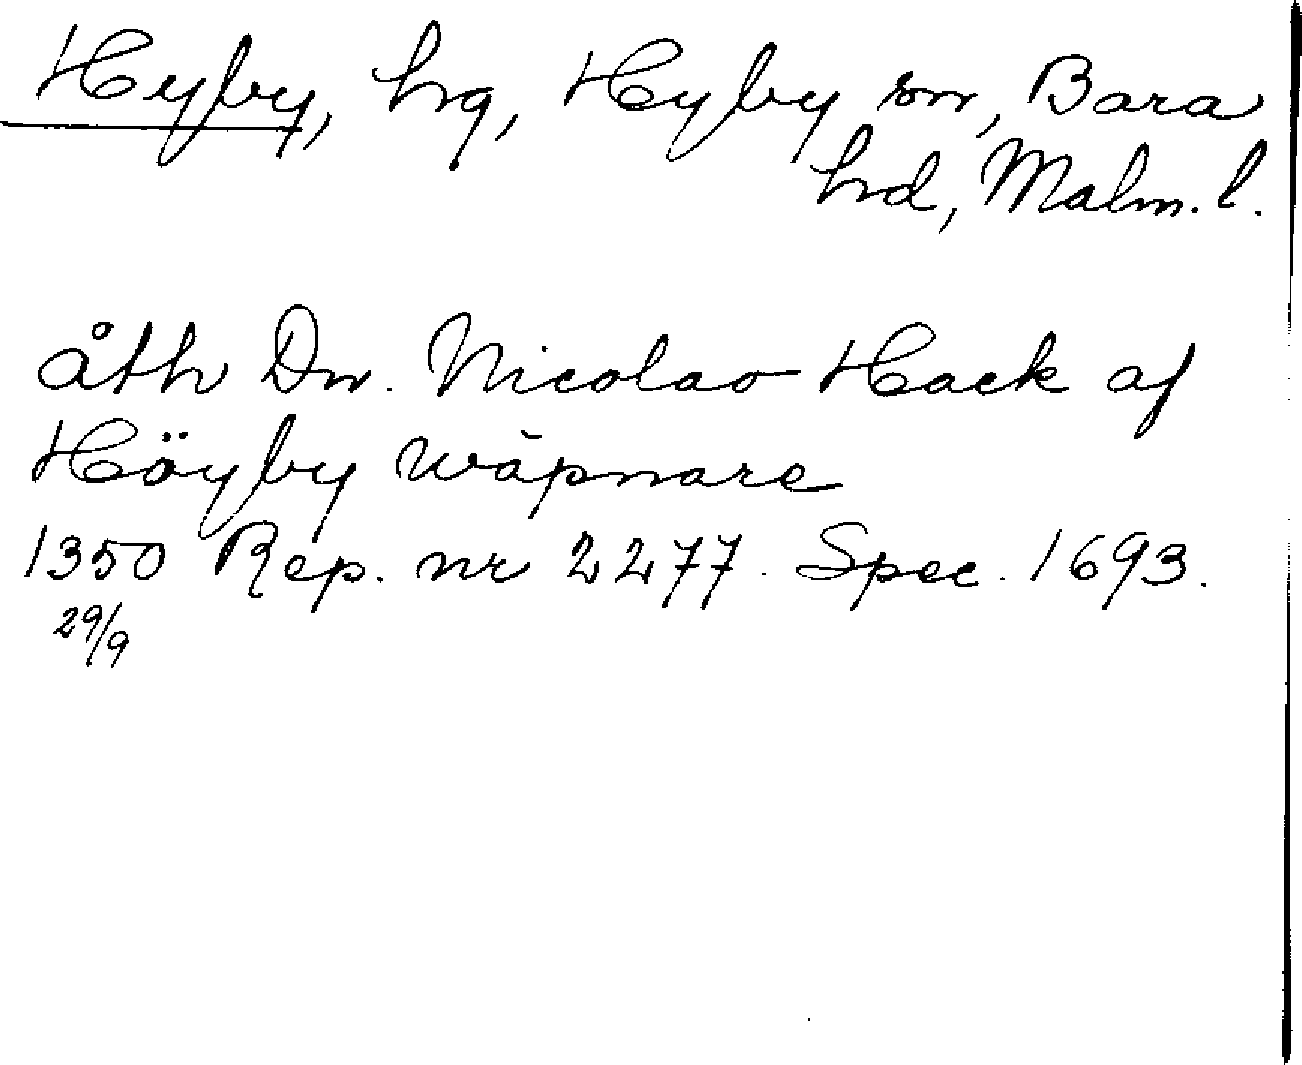 Hyby, hg, Hyby sn, Bara
hd, Malm. l.
åth Dn. Nicolao Hack af
Höyby wäpnare
1350 Rep. nr 2277. Spec. 1693.
29/9